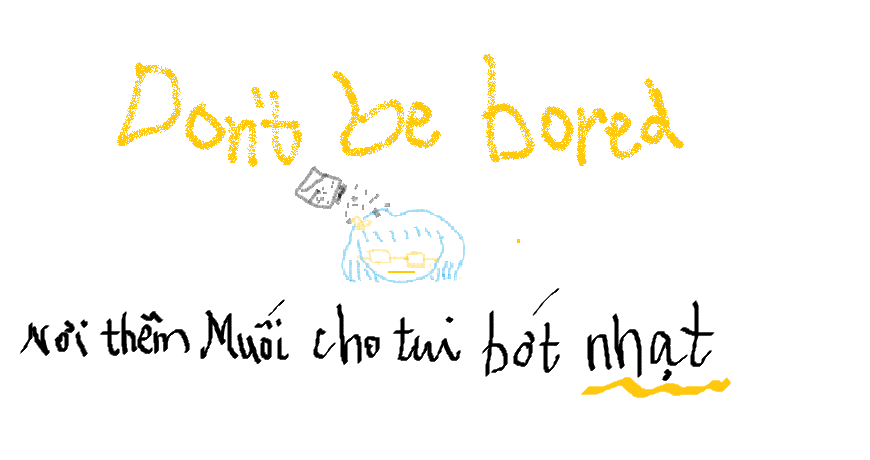 Don't be bored
Nơi thêm Muối cho tui bớt nhạt